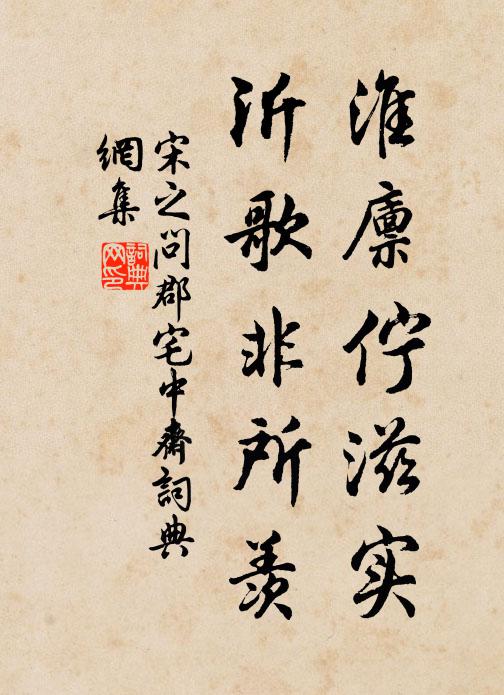 淮廪伫滋实
沂歌非所羡
宋之问郡宅中斋词典
网集
词典
网印